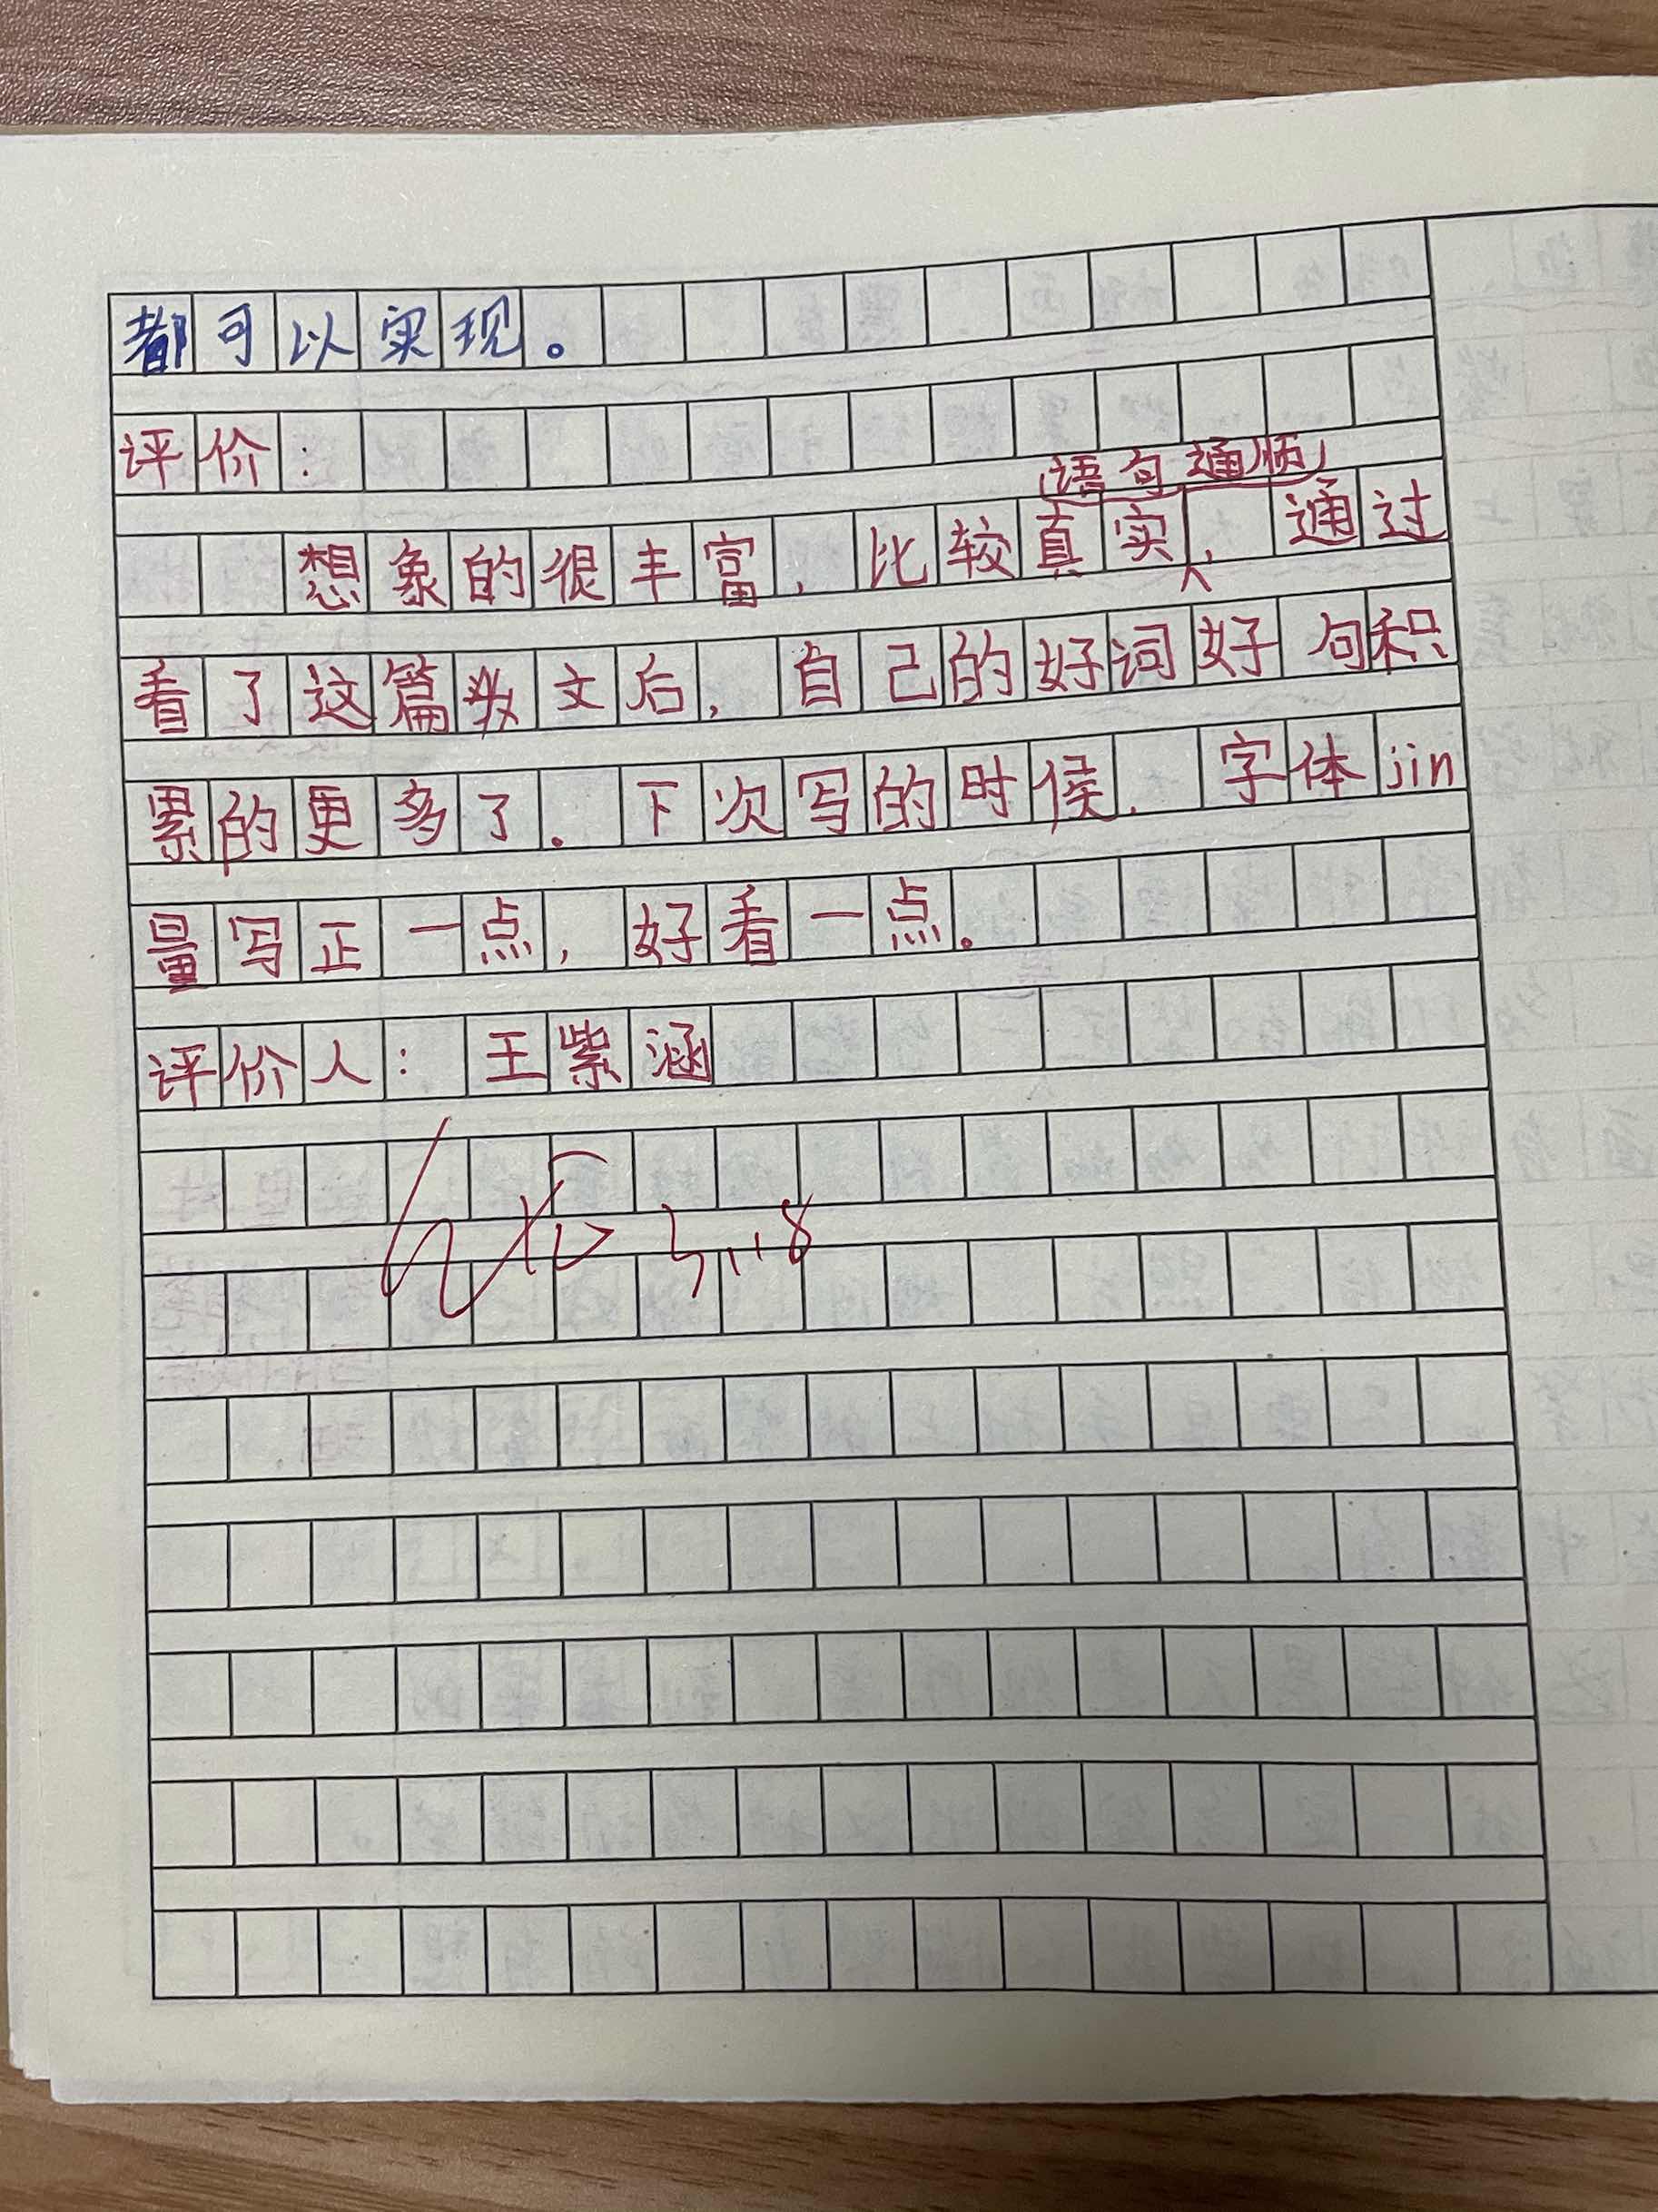 都可以实现。
评价：
语句通顺，
想象的很丰富，比较真实，通过
看了这篇文后，自己的好词好句积
累的更多了。下次写的时候，字体jin
量写正一点，好看一点。
评价人：王紫涵